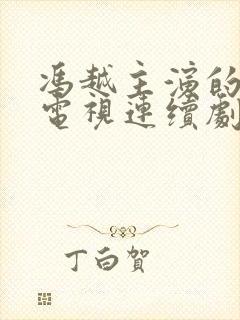 馮越主演的
電視連續劇
丁白賀